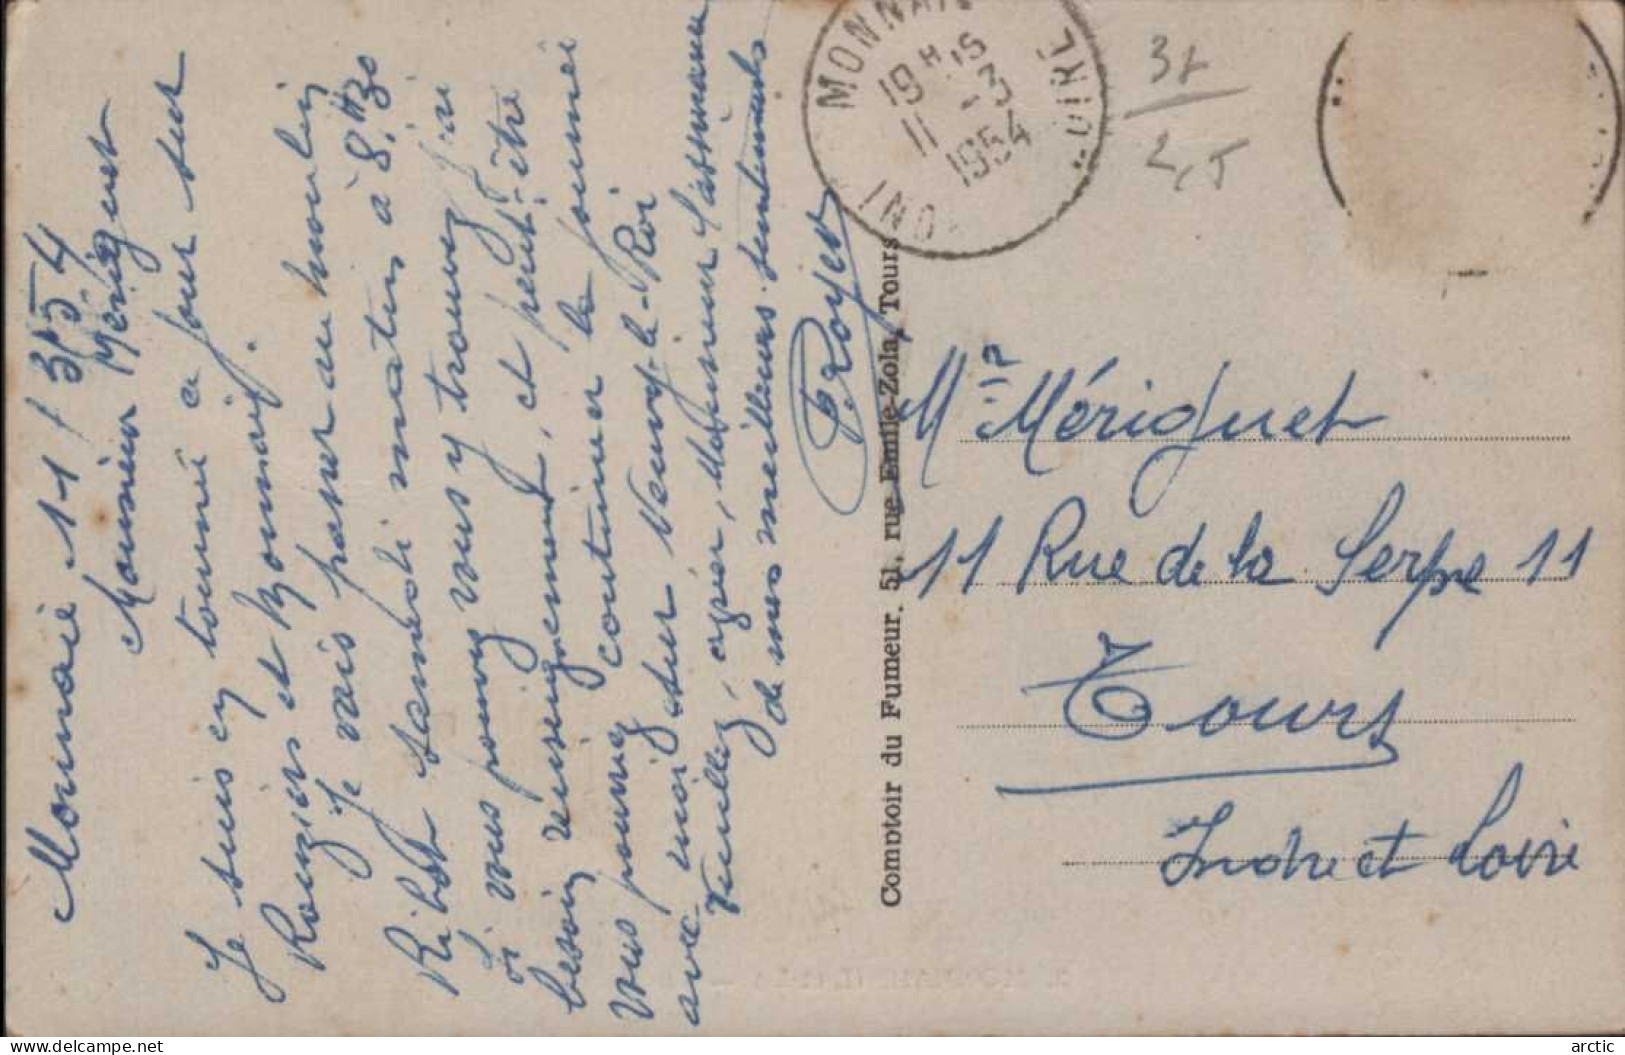 Monnaie 11/3/54
Monsieur Mériguet
Je suis en tournée à jour sur
Rouziers et Monnaie.
Je vais passer au moulin
Ribot samedi matin à 8H30
si vous pouvez vous y trouver j'ai
besoin renseignement, et peut-être
vous pourrez continuer la journée
avec moi sur Neuvy-le-Roi
Veuillez, agréer, Monsieur l'assurance
de mes meilleurs sentiments
Royer
Comptoir du Fumeur. 51, rue Emile-Zola, Tours
MONNAIE
19H15
11 -3
1954
INDRE
LOIRE
Mr Mériguet
11 Rue de la Serpe 11
Tours
Indre et Loire
delcampe.net
arctic